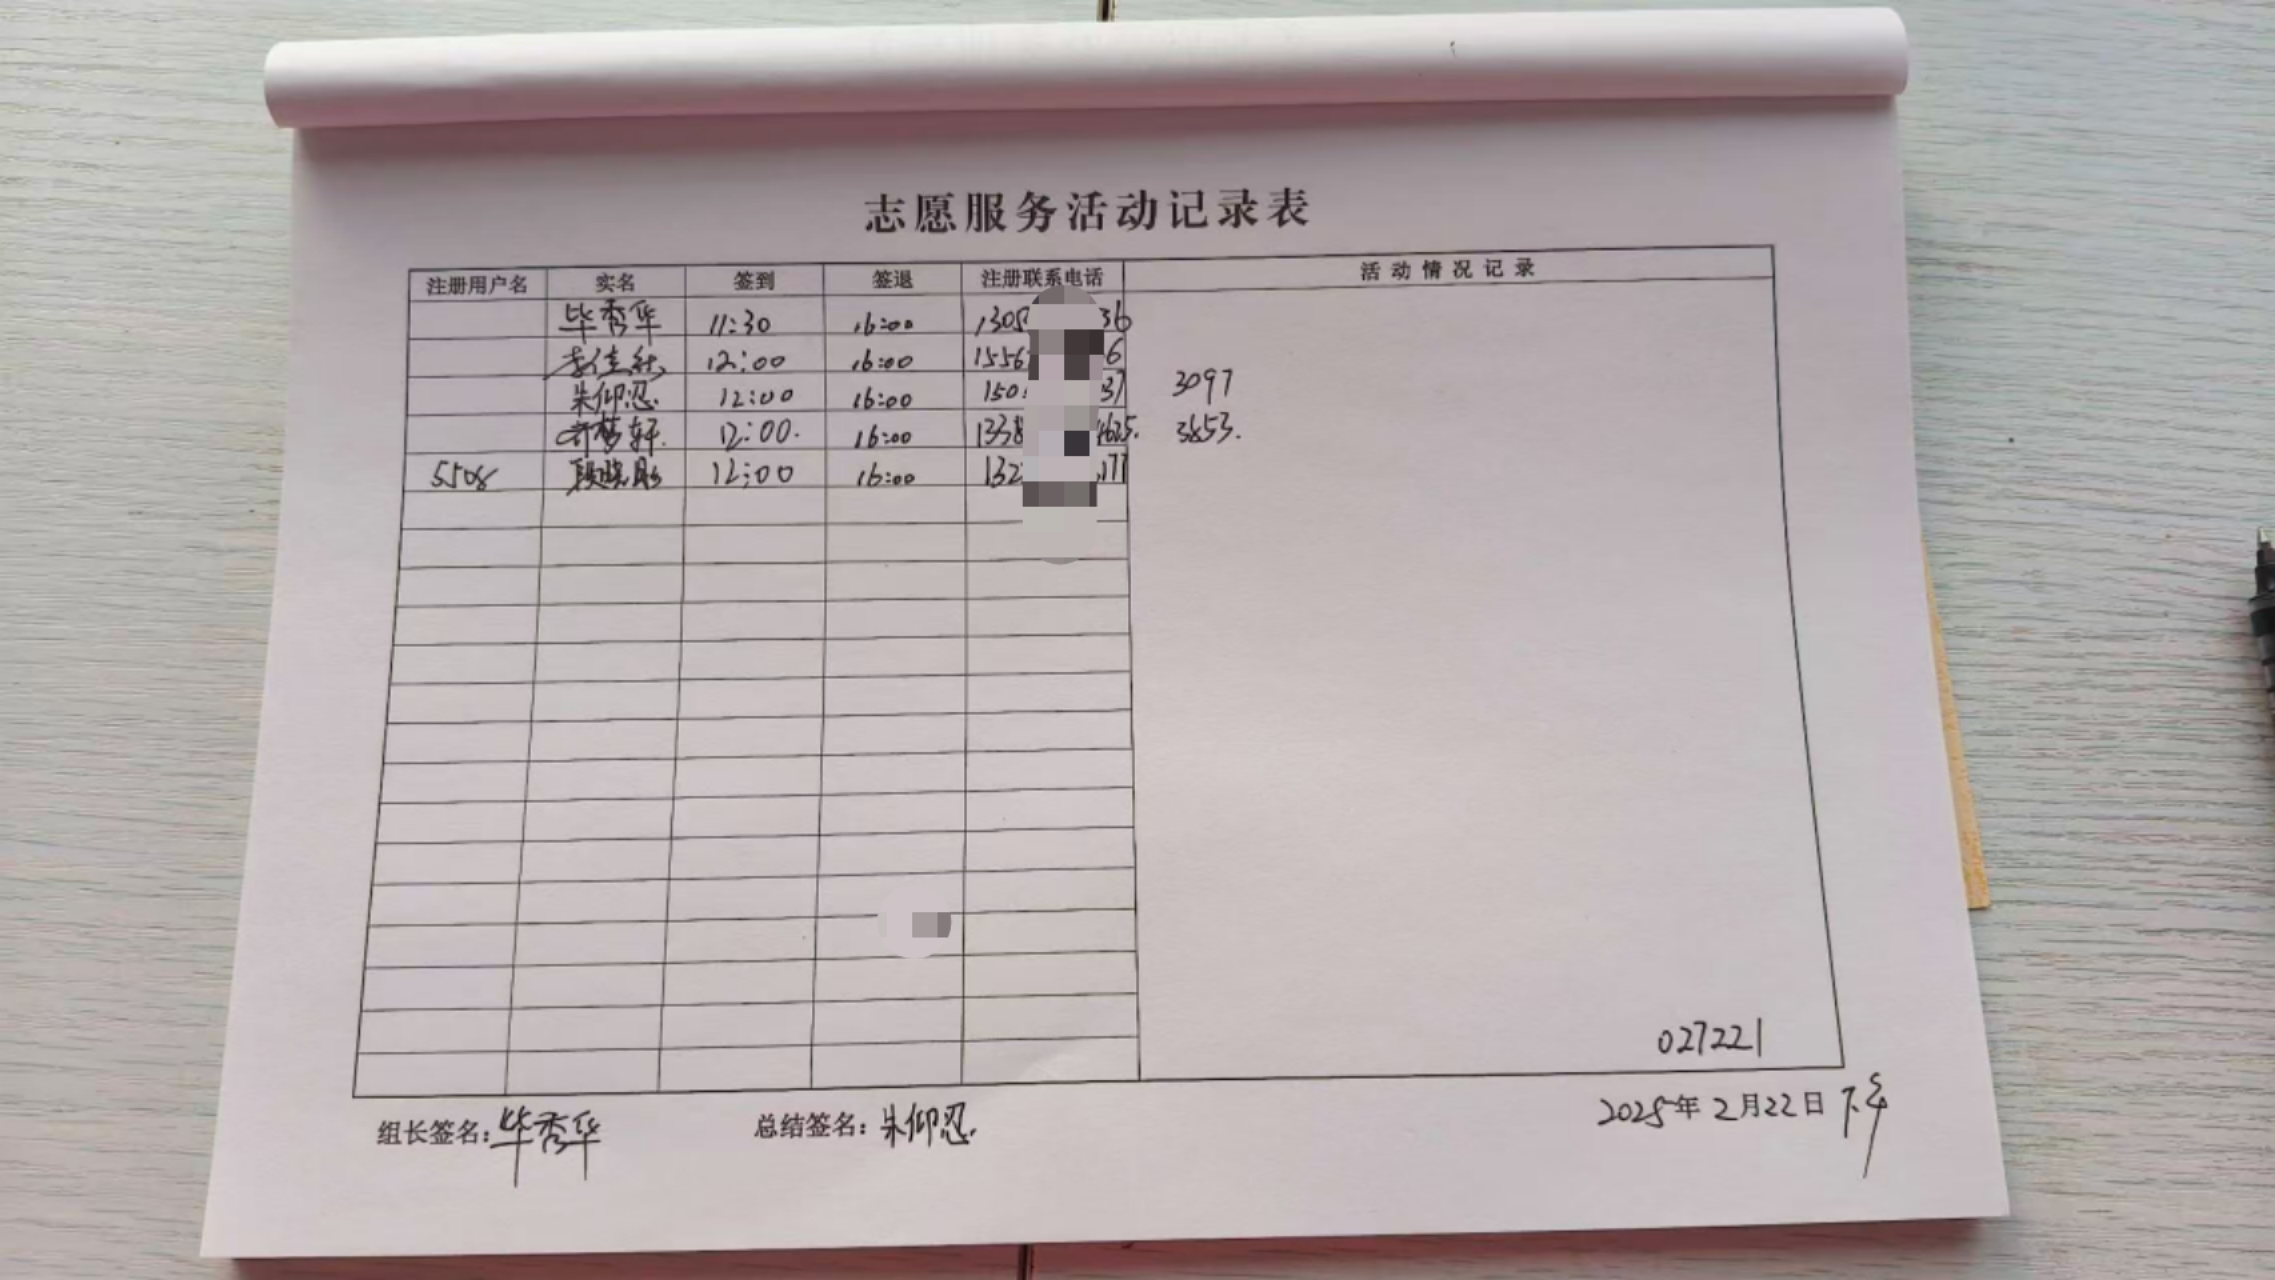 志愿服务活动记录表
注册用户名 实名 签到 签退 注册联系电话 活动情况记录
毕秀华 11:30 16:00 1305 36
12:00 16:00 1556 6
朱仰忍 12:00 16:00 150 37 3097
12:00. 16:00 1338 4625. 3853.
5508 段晓彤 12:00 16:00 132 177
027221
组长签名:毕秀华 总结签名:朱仰忍
2025年2月22日 下午